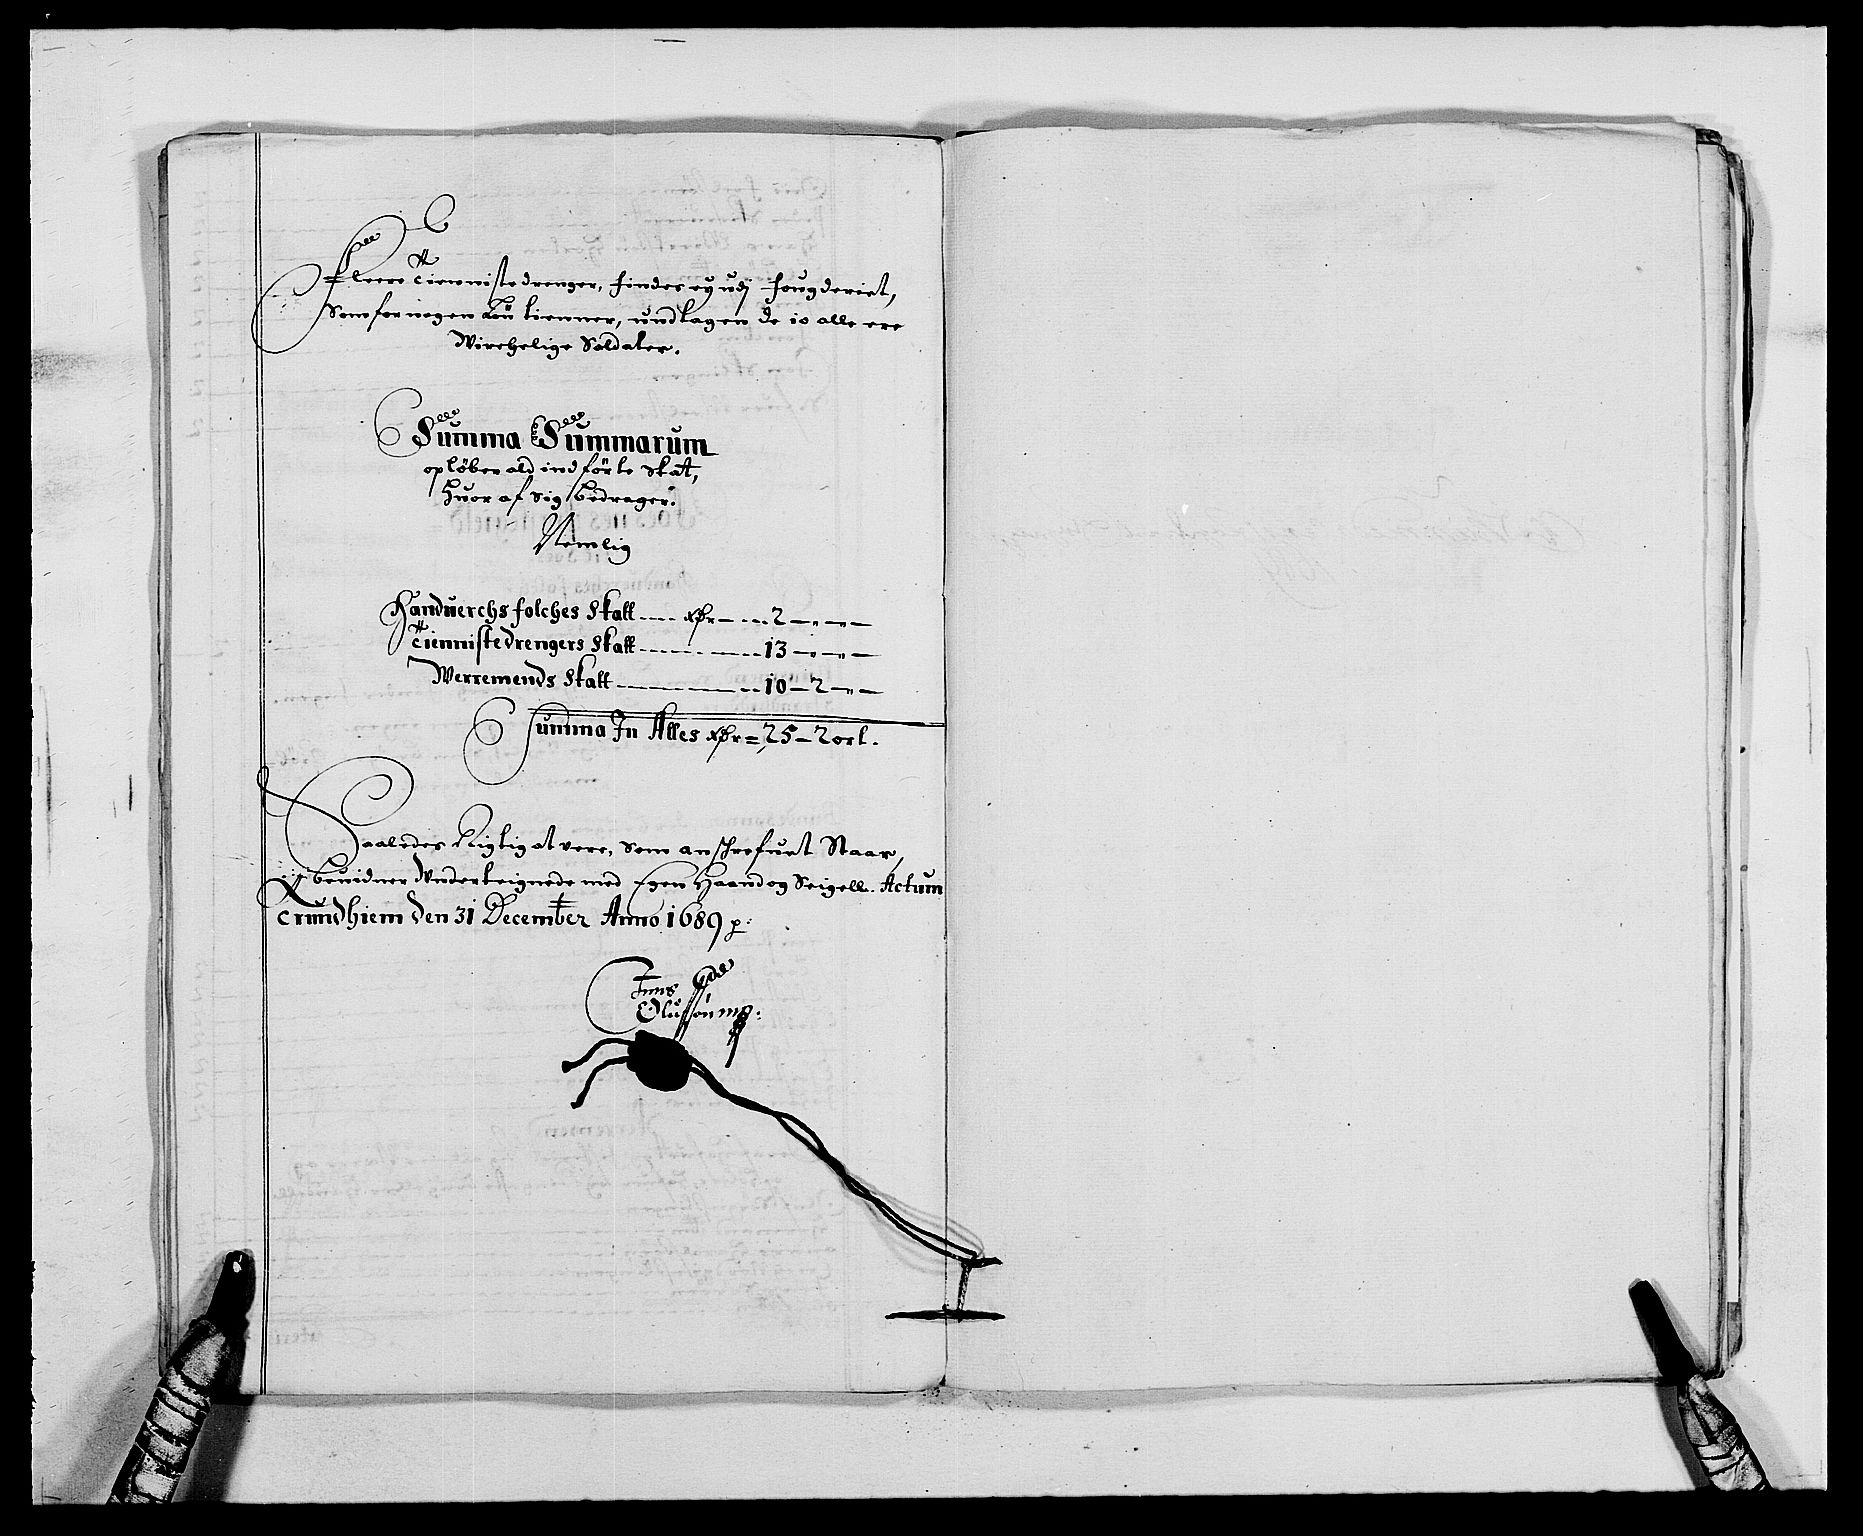 Fleere Tiennistedrenger, findes ey udj fougderiet,
Som for nogen Løn tienner, undtagen de 10 alle ere
Wirchelige Soldater.
Summa Summarum
opløber ald indførte Skat,
Huor af sig bedrager.
Nemlig
Handuerchs folches Skatt ---- Rdr --- 2 - „ - „ -
Tiennistedrengers Skatt ---- 13 - „ - „ -
Werremends Skatt ---- 10 - 2 - „ -
Summa In Alles Rdr = 25 - 2 ort.
Saaledes Rigtig at vere, Som anschrefuet Staar,
bevidner Underteignede med Egen Haand og Seigell. Actum
Trundhiem den 31 December Anno 1689 p:
Jens
Olufsøn mp: